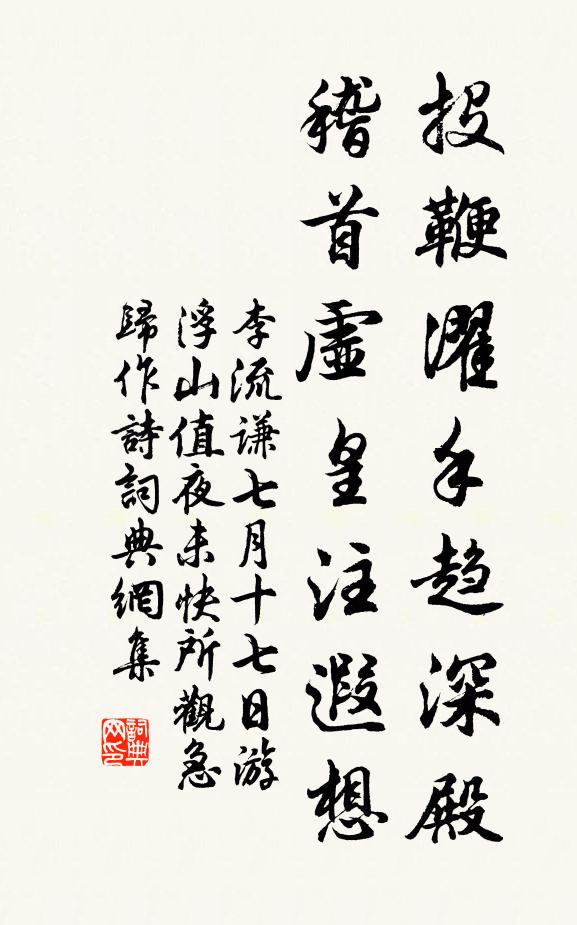 投鞭濯手趋深殿
稽首虛皇注遐想
李流谦七月十七日游
浮山值夜未快所觀急
歸作詩詞典網集
詞典
网印